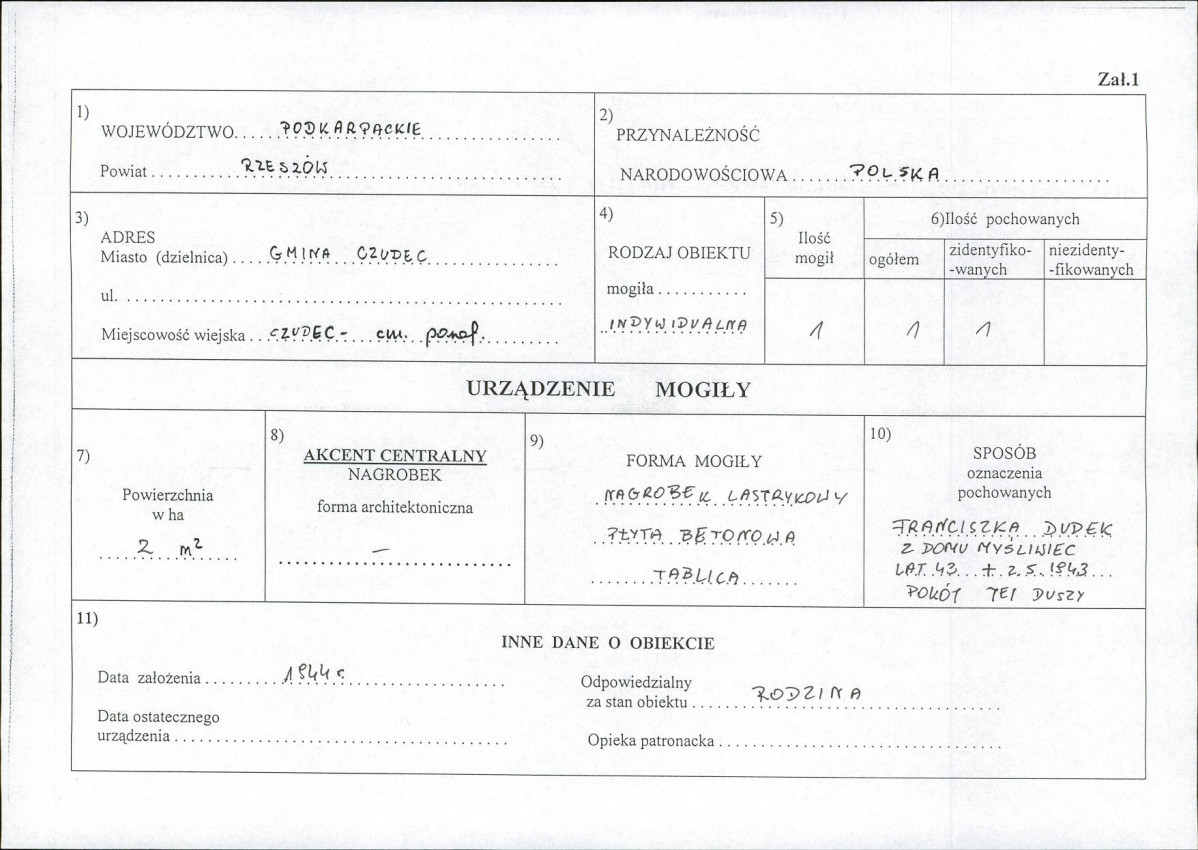 Zał.1
1)
WOJEWÓDZTWO. PODKARPACKIE
Powiat RZESZÓW
2)
PRZYNALEŻNOŚĆ
NARODOWOŚCIOWA POLSKA
3)
ADRES
Miasto (dzielnica) GMINA CZUDEC
ul.
Miejscowość wiejska CZUDEC - cm. paraf.
4)
RODZAJ OBIEKTU
mogiła
INDYWIDUALNA
5)
Ilość
mogił
1
6)Ilość pochowanych
ogółem
1
zidentyfiko-
-wanych
1
niezidenty-
-fikowanych
URZĄDZENIE MOGIŁY
7)
Powierzchnia
w ha
2 m²
8)
AKCENT CENTRALNY
NAGROBEK
forma architektoniczna
—
9)
FORMA MOGIŁY
NAGROBEK LASTRYKOWY
PŁYTA BETONOWA
TABLICA
10)
SPOSÓB
oznaczenia
pochowanych
FRANCISZKA DUDEK
Z DOMU MYŚLIWIEC
LAT 43 + 2.5.1943
POKÓJ TEJ DUSZY
11)
INNE DANE O OBIEKCIE
Data założenia 1944 r.
Data ostatecznego
urządzenia
Odpowiedzialny
za stan obiektu RODZINA
Opieka patronacka